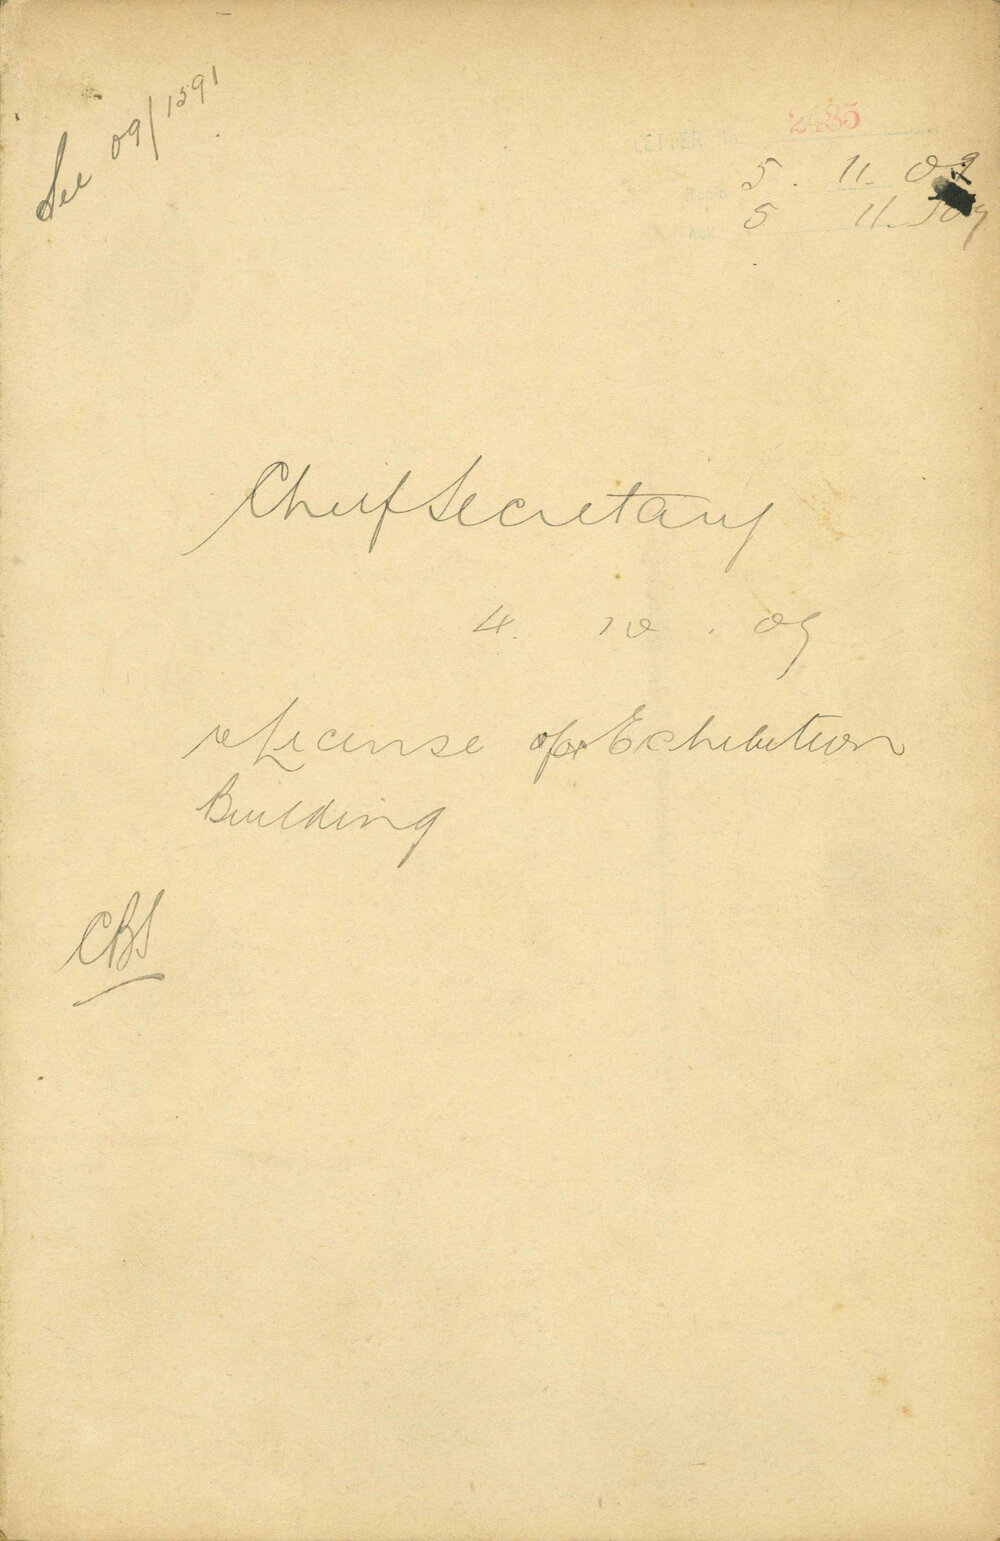 See 09/1591
LETTER 2485
5. 11. 09
5 11. 09
Chief Secretary
4. 10. 09
re License of Exhibition
Building
CBS